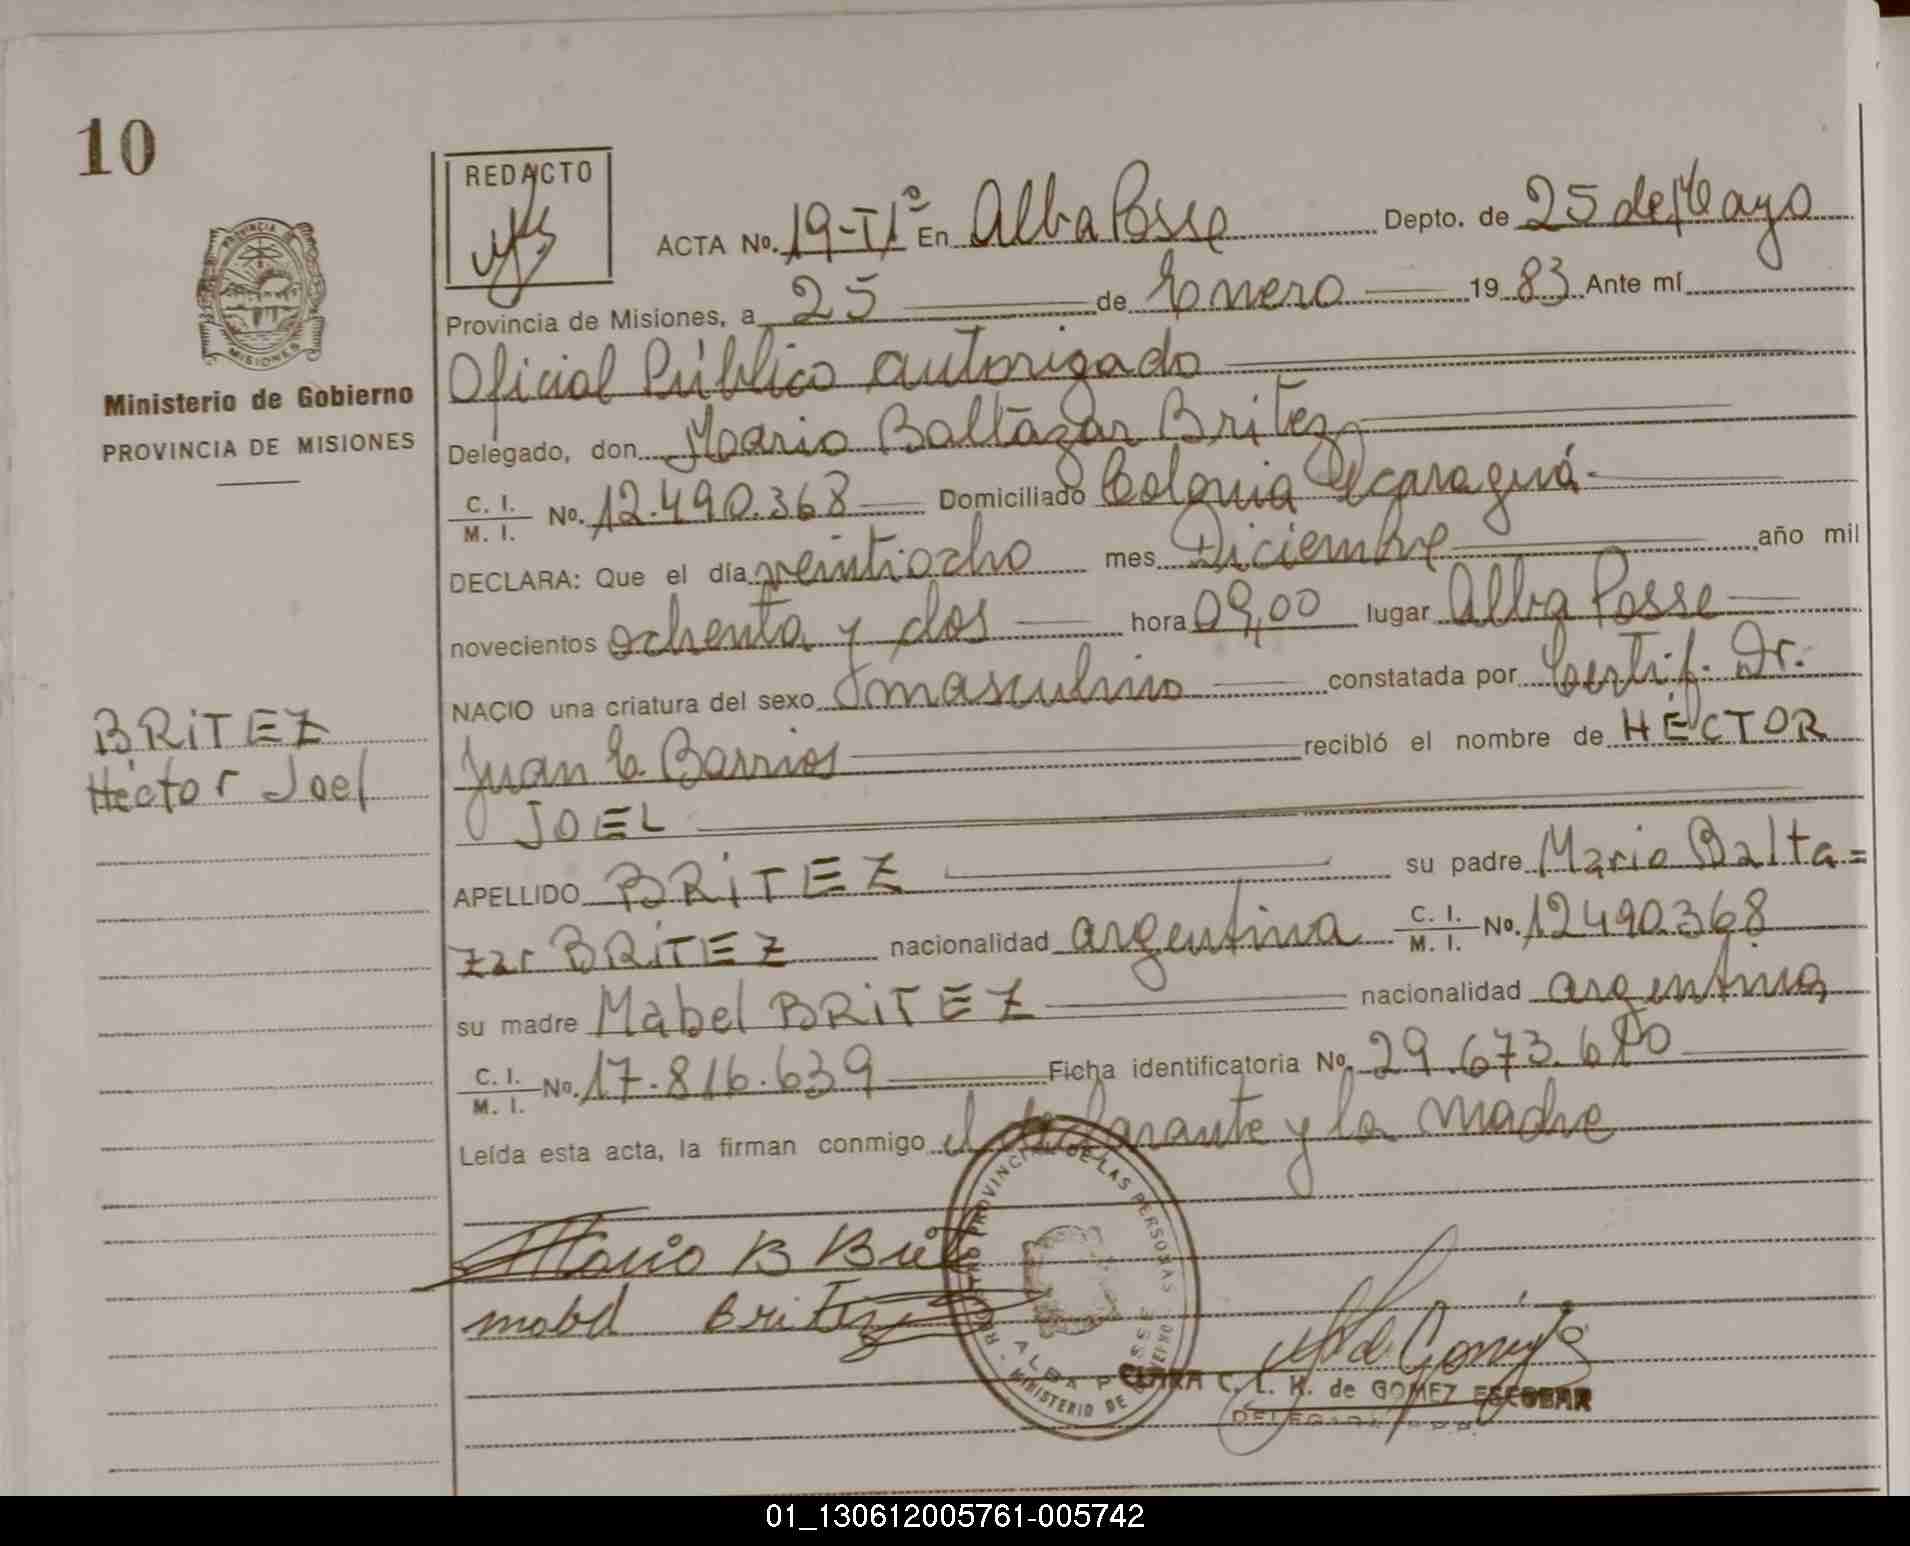 10
REDACTO
ACTA No. 19-T1º En Alba Posse Depto. de 25 de Mayo
Provincia de Misiones, a 25 de Enero 1983 Ante mí
Oficial Público autorizado
Delegado, don Mario Baltazar Britez
C. I. / M. I. No. 12.490.368 Domiciliado Colonia Acaraguá
DECLARA: Que el día veintiocho mes Diciembre año mil
novecientos ochenta y dos hora 09,00 lugar Alba Posse
NACIO una criatura del sexo masculino constatada por Certif. Dr.
Juan E. Barrios recibió el nombre de HÉCTOR
JOEL
APELLIDO BRITEZ su padre Mario Balta=
zar BRITEZ nacionalidad argentina C. I. / M. I. No. 12490.368
su madre Mabel BRITEZ nacionalidad argentina
C. I. / M. I. No. 17.816.639 Ficha identificatoria No. 29.673.610
Leída esta acta, la firman conmigo el declarante y la madre
Mario B Brit
mabel Britez
CLARA C. L. H. de GOMEZ ESCOBAR
REGISTRO PROVINCIAL DE LAS PERSONAS
ALBA POSSE
MINISTERIO DE GOBIERNO
PROVINCIA DE
MISIONES
Ministerio de Gobierno
PROVINCIA DE MISIONES
BRITEZ
Héctor Joel
01_130612005761-005742